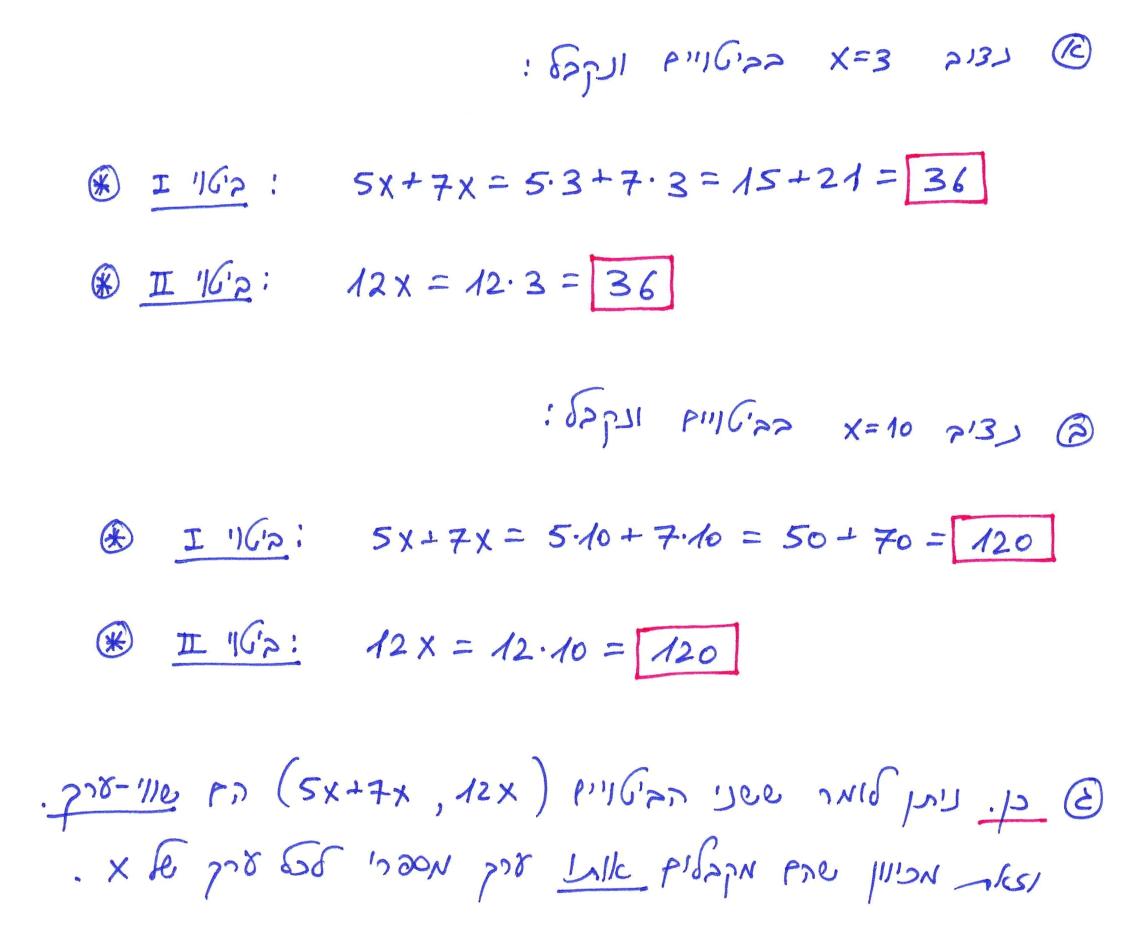 א נציב x=3 בביטויים ונקבל:
* ביטוי I: 5x+7x = 5·3+7·3 = 15+21 = 36
* ביטוי II: 12x = 12·3 = 36
ב נציב x=10 בביטויים ונקבל:
* ביטוי I: 5x+7x = 5·10+7·10 = 50+70 = 120
* ביטוי II: 12x = 12·10 = 120
ג כן. ניתן לומר ששני הביטויים (5x+7x, 12x) הם שווי-ערך.
וזאת מכיוון שהם מקבלים אותו ערך מספרי לכל ערך של x.